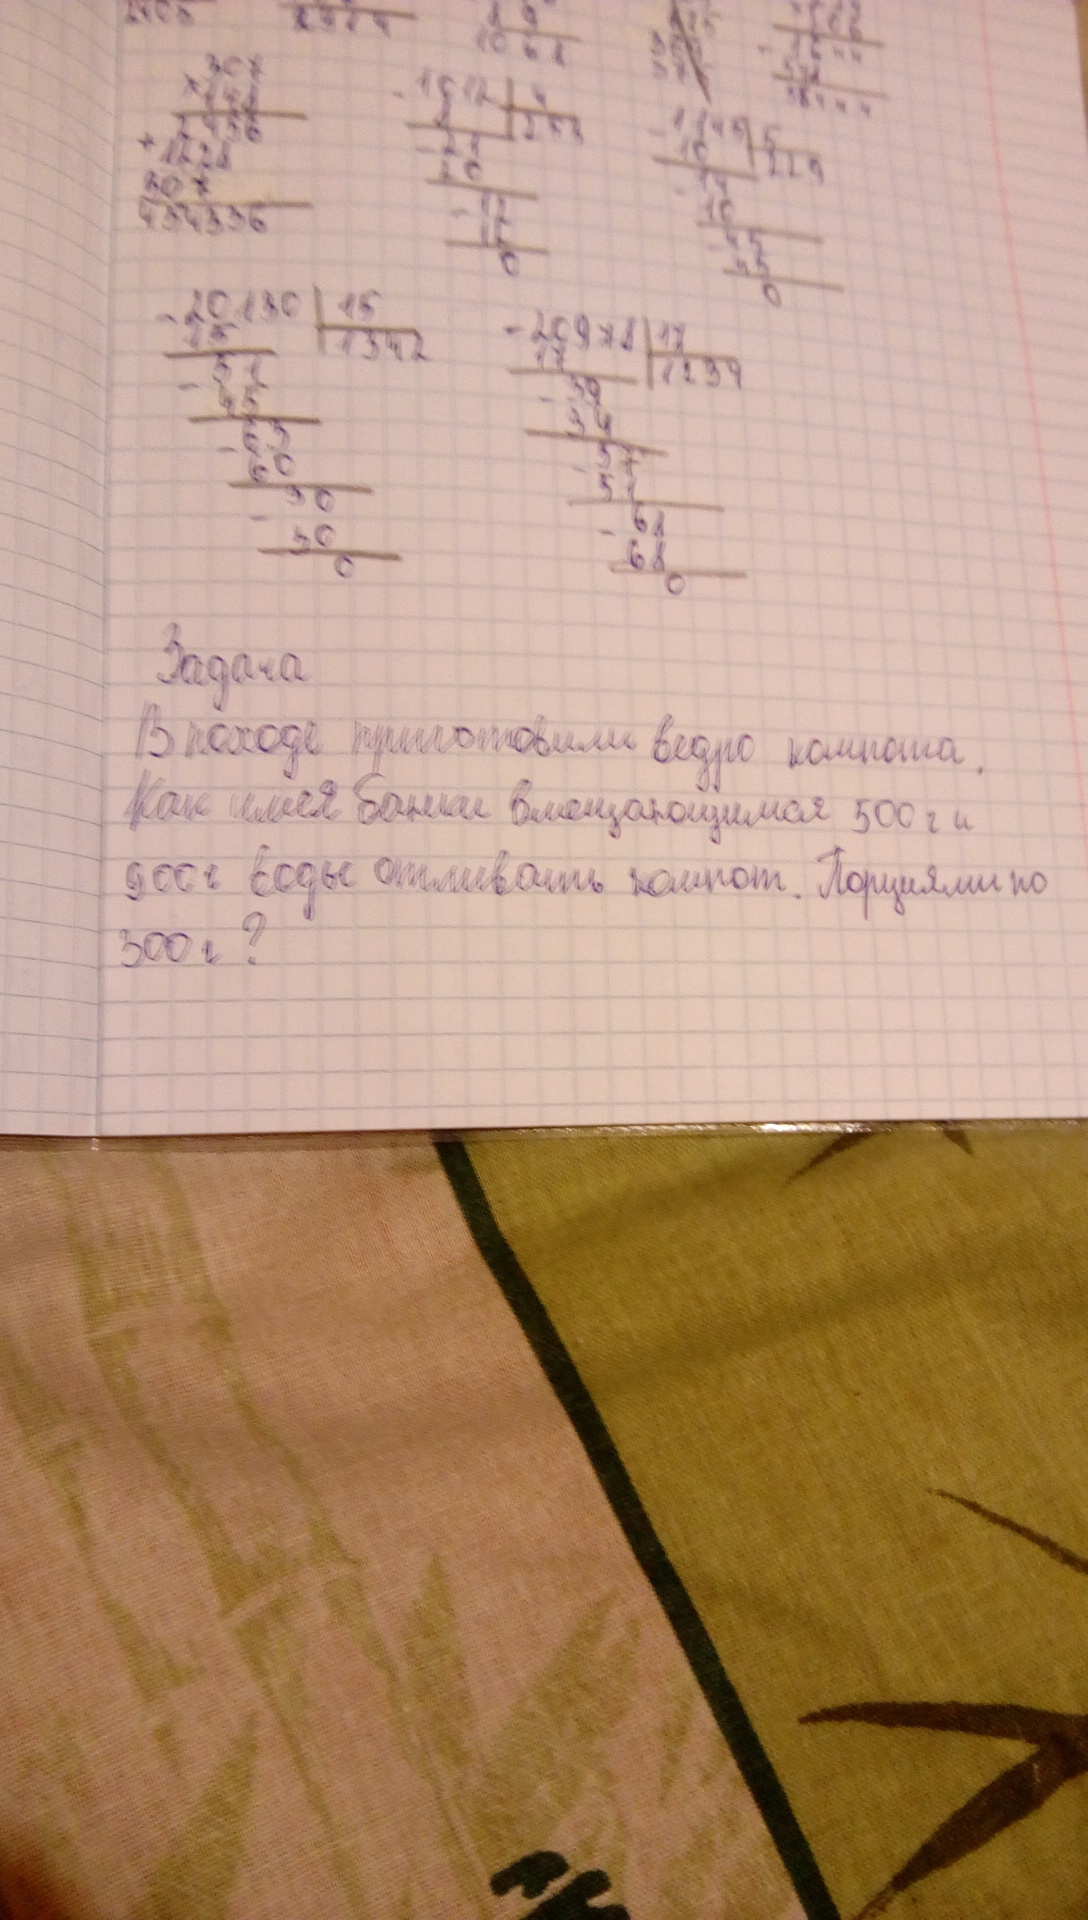 1228
307
434336
1012 | 4
8 | 253
20
12
12
0
1145 | 5
10 | 229
14
10
45
45
0
- 20130 | 15
15 | 1342
51
- 45
63
- 60
30
- 30
0
- 20978 | 17
17 | 1234
- 39
34
- 57
51
- 68
68
0
Задача
В походе приготовили ведро компота.
Как имея банки вмещающимая 500г и
900г воды отливать компот. Порциями по
300г?